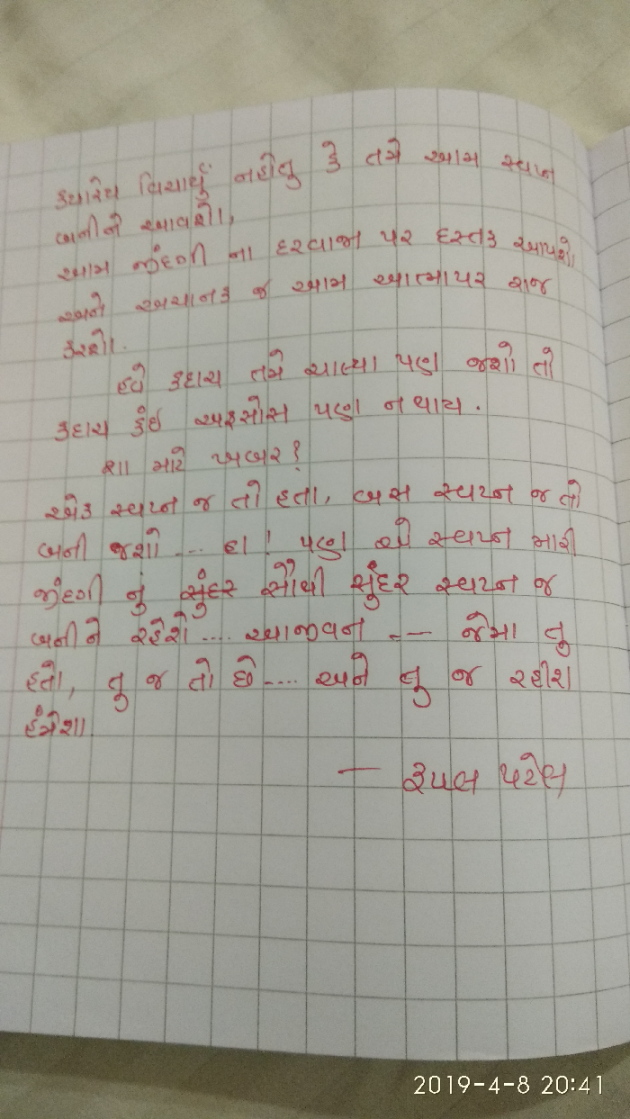 ક્યારેય વિચાર્યું નહોતુ કે તમે આમ સ્વપ્ન
બનીને આવશો,
આમ જીંદગી ના દરવાજા પર દસ્તક આપશો
અને અચાનક જ આમ આત્મા પર રાજ
કરશો.
હવે કદાચ તમે ચાલ્યા પણ જશો તો
કદાચ કંઇ અફસોસ પણ ન થાય.
શા માટે ખબર?
એક સ્વપ્ન જ તો હતા, બસ સ્વપ્ન જ તો
બની જશો ... હા! પણ એ સ્વપ્ન મારી
જીંદગી નું સુંદર સૌથી સુંદર સ્વપ્ન જ
બની ને રહેશે .... આજીવન -- જેમા તુ
હતો, તુ જ તો છે .... અને તુ જ રહીશ
હંમેશા
— રૂપલ પટેલ
2019-4-8 20:41